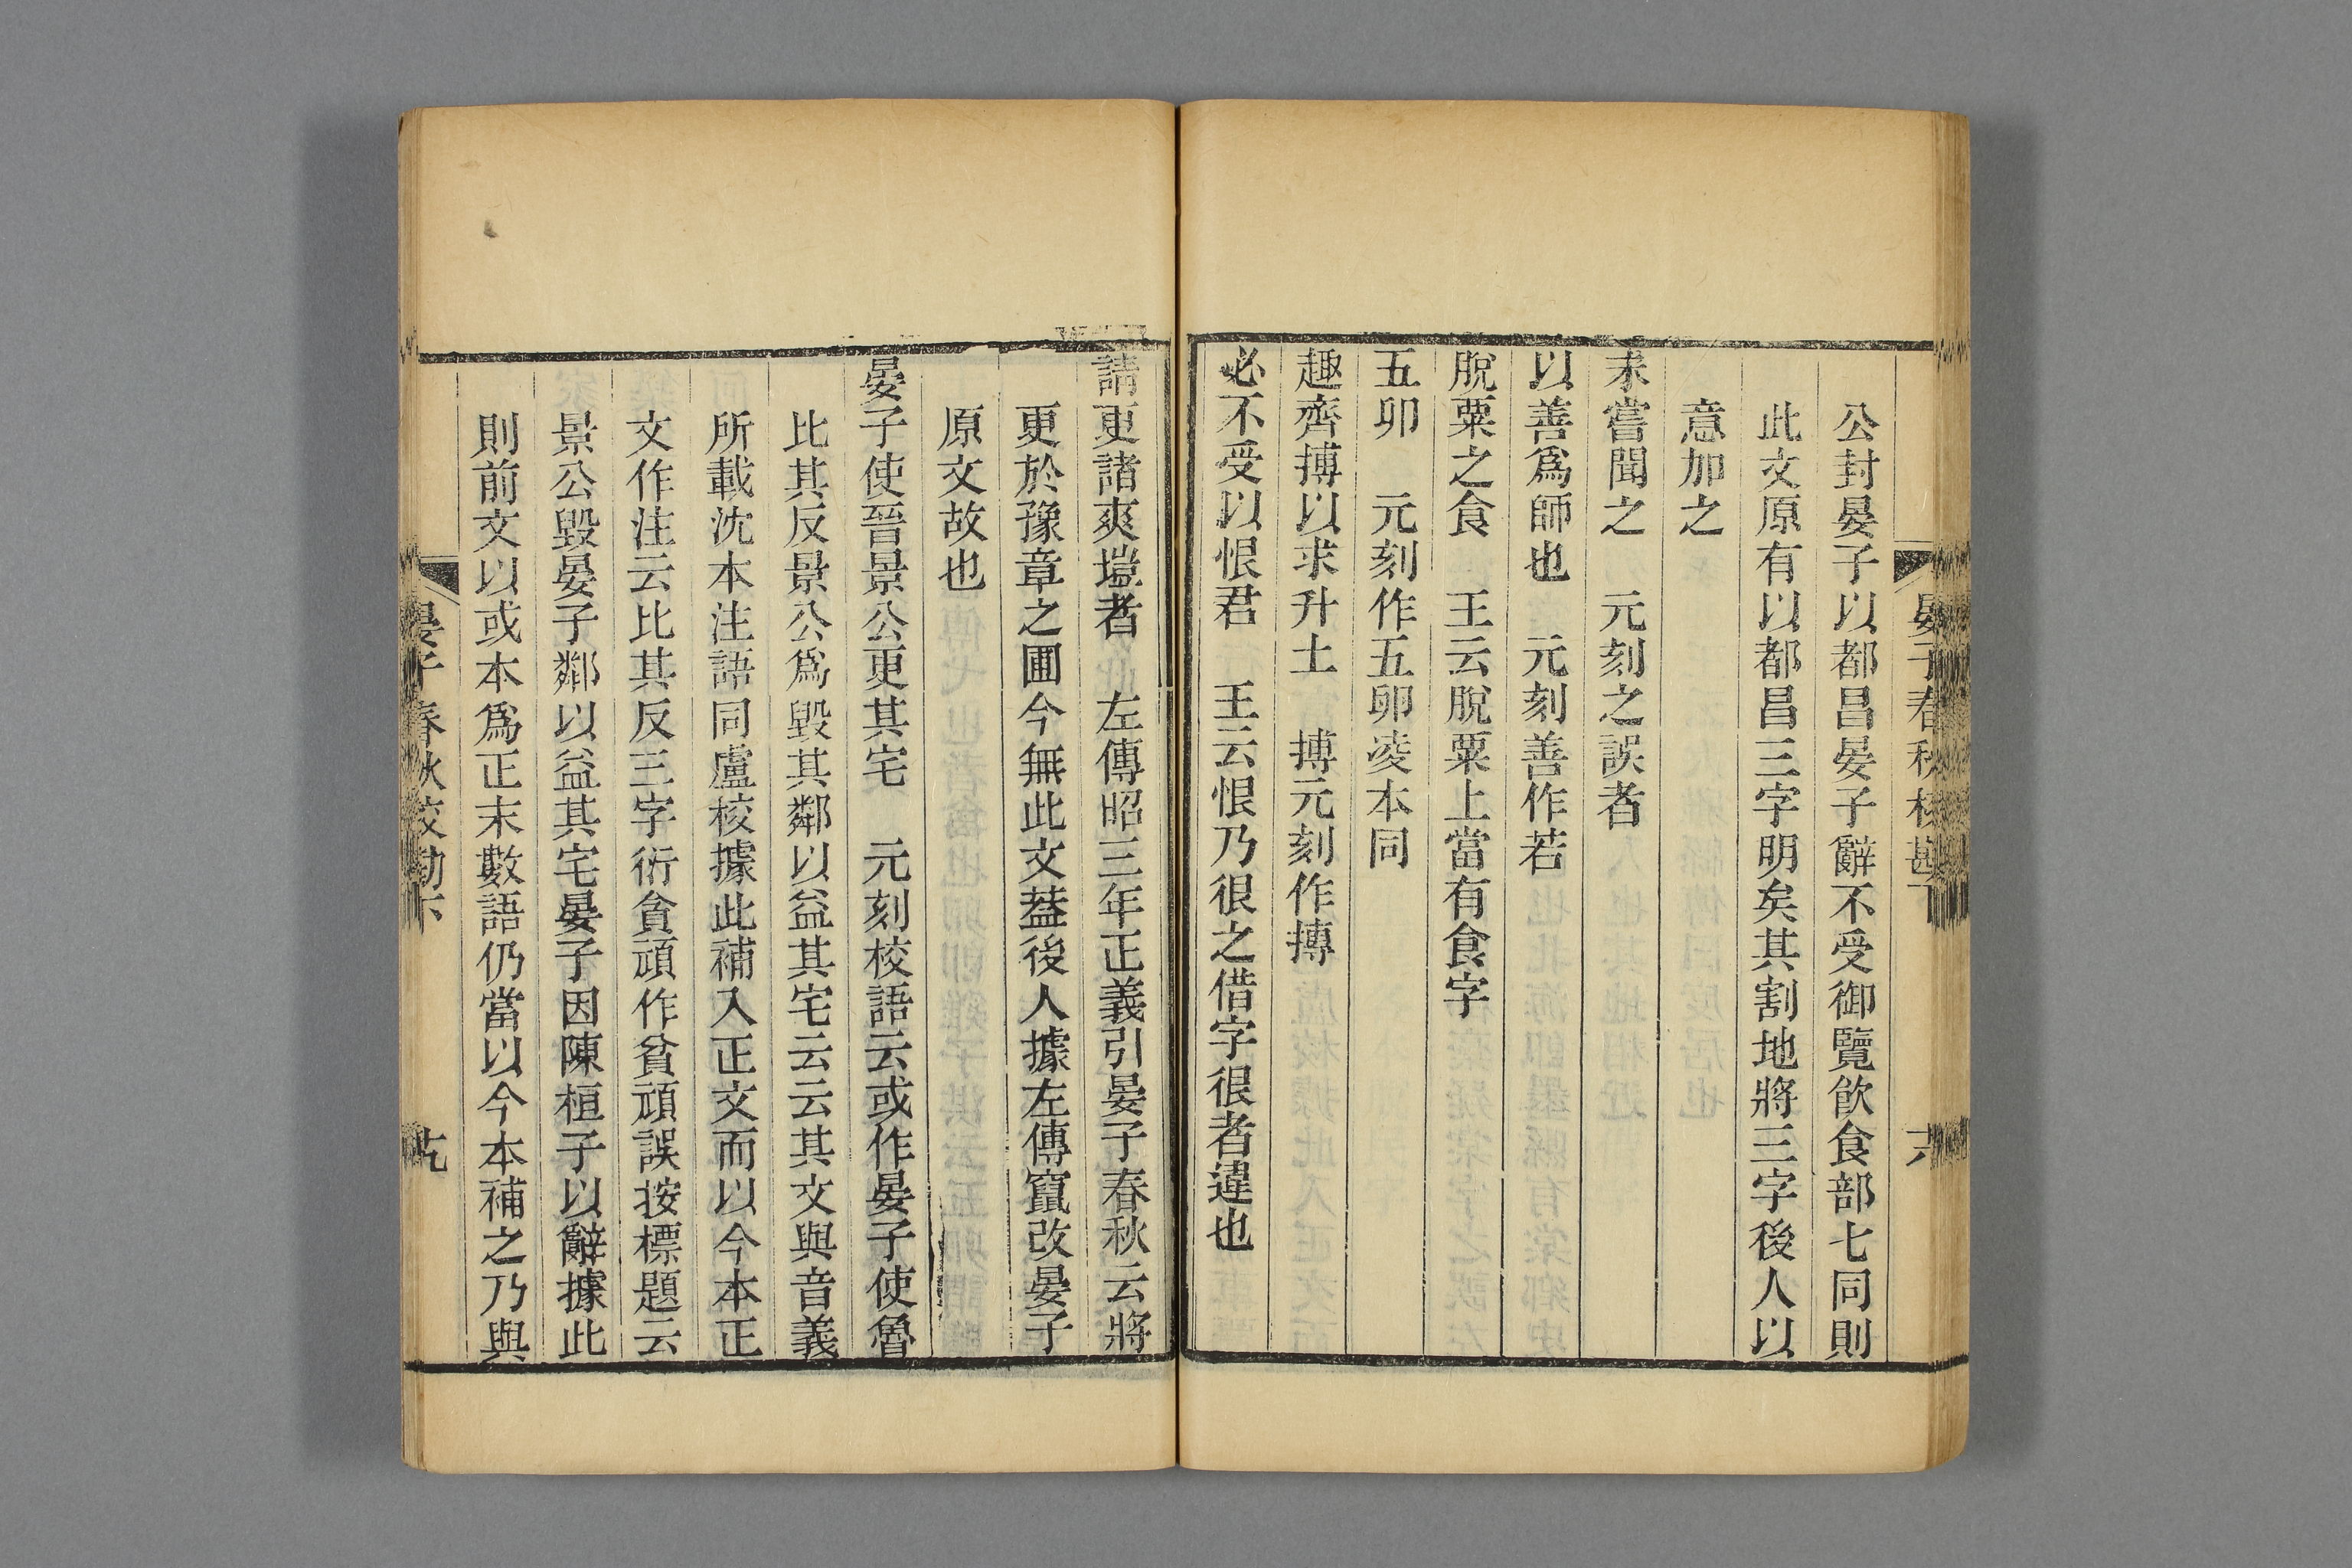 公封晏子以都昌晏子辭不受御覽飲食部七同則
此文原有以都昌三字明矣其割地將三字後人以
意加之
未嘗聞之　元刻之誤者
以善爲師也　元刻善作若
脫粟之食　王云脫粟上當有食字
五卯　元刻作五卵凌本同
趣齊搏以求升土　搏元刻作摶
必不受以恨君　王云恨乃很之借字很者違也
請更諸爽塏者　左傳昭三年正義引晏子春秋云將
更於豫章之圃今無此文葢後人據左傳竄改晏子
原文故也
晏子使晉景公更其宅　元刻校語云或作晏子使魯
比其反景公爲毀其鄰以益其宅云云其文與音義
所載沈本注語同盧校據此補入正文而以今本正
文作注云比其反三字衍貪頑作貧頑誤按標題云
景公毀晏子鄰以益其宅晏子因陳桓子以辭據此
則前文以或本爲正末數語仍當以今本補之乃與
晏子春秋校勘下